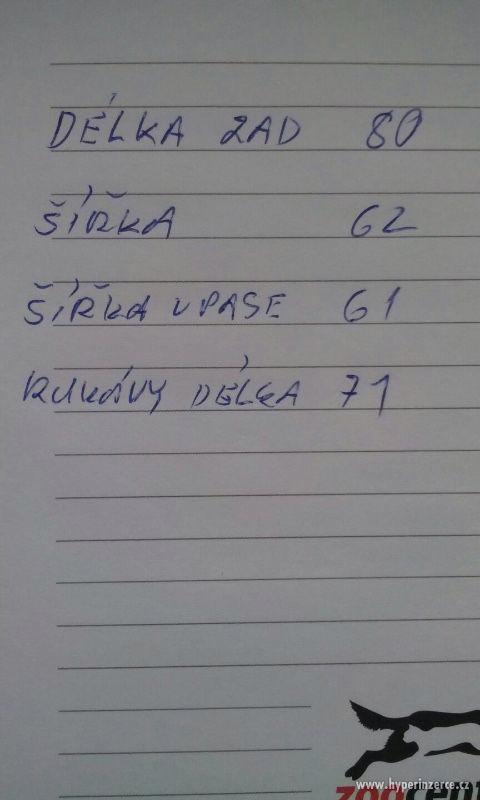 DÉLKA ZAD 80
ŠÍŘKA 62
ŠÍŘKA V PASE 61
RUKÁVY DÉLKA 71
www.hyperinzerce.cz
zoocent